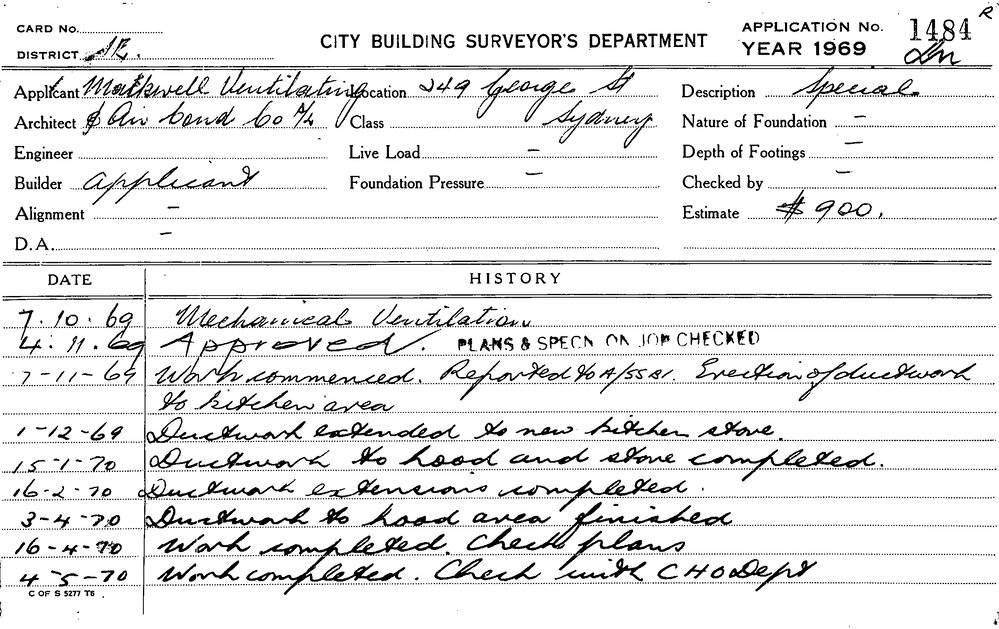 CARD No.
DISTRICT
CITY BUILDING SURVEYOR'S DEPARTMENT
APPLICATION No. 1484 R
YEAR 1969
Applicant Matkwell Ventilating Location 249 George St Description Special
Architect & Air Cond Co P/L Class Sydney Nature of Foundation –
Engineer Live Load – Depth of Footings –
Builder applicant Foundation Pressure – Checked by –
Alignment – Estimate $900.
D.A. –
DATE HISTORY
7.10.69 Mechanical Ventilation
4.11.69 Approved. PLANS & SPECN ON JOB CHECKED
7-11-69 Work commenced. Reported to Erection of ductwork
to kitchen area
1-12-69 Ductwork extended to new kitchen stove.
15-1-70 Ductwork to hood and stove completed.
16-2-70 Ductwork extensions completed.
3-4-70 Ductwork to hood area finished
16-4-70 Work completed. Check plans
4-5-70 Work completed. Check with CHO Dept
C OF S 5277 T6